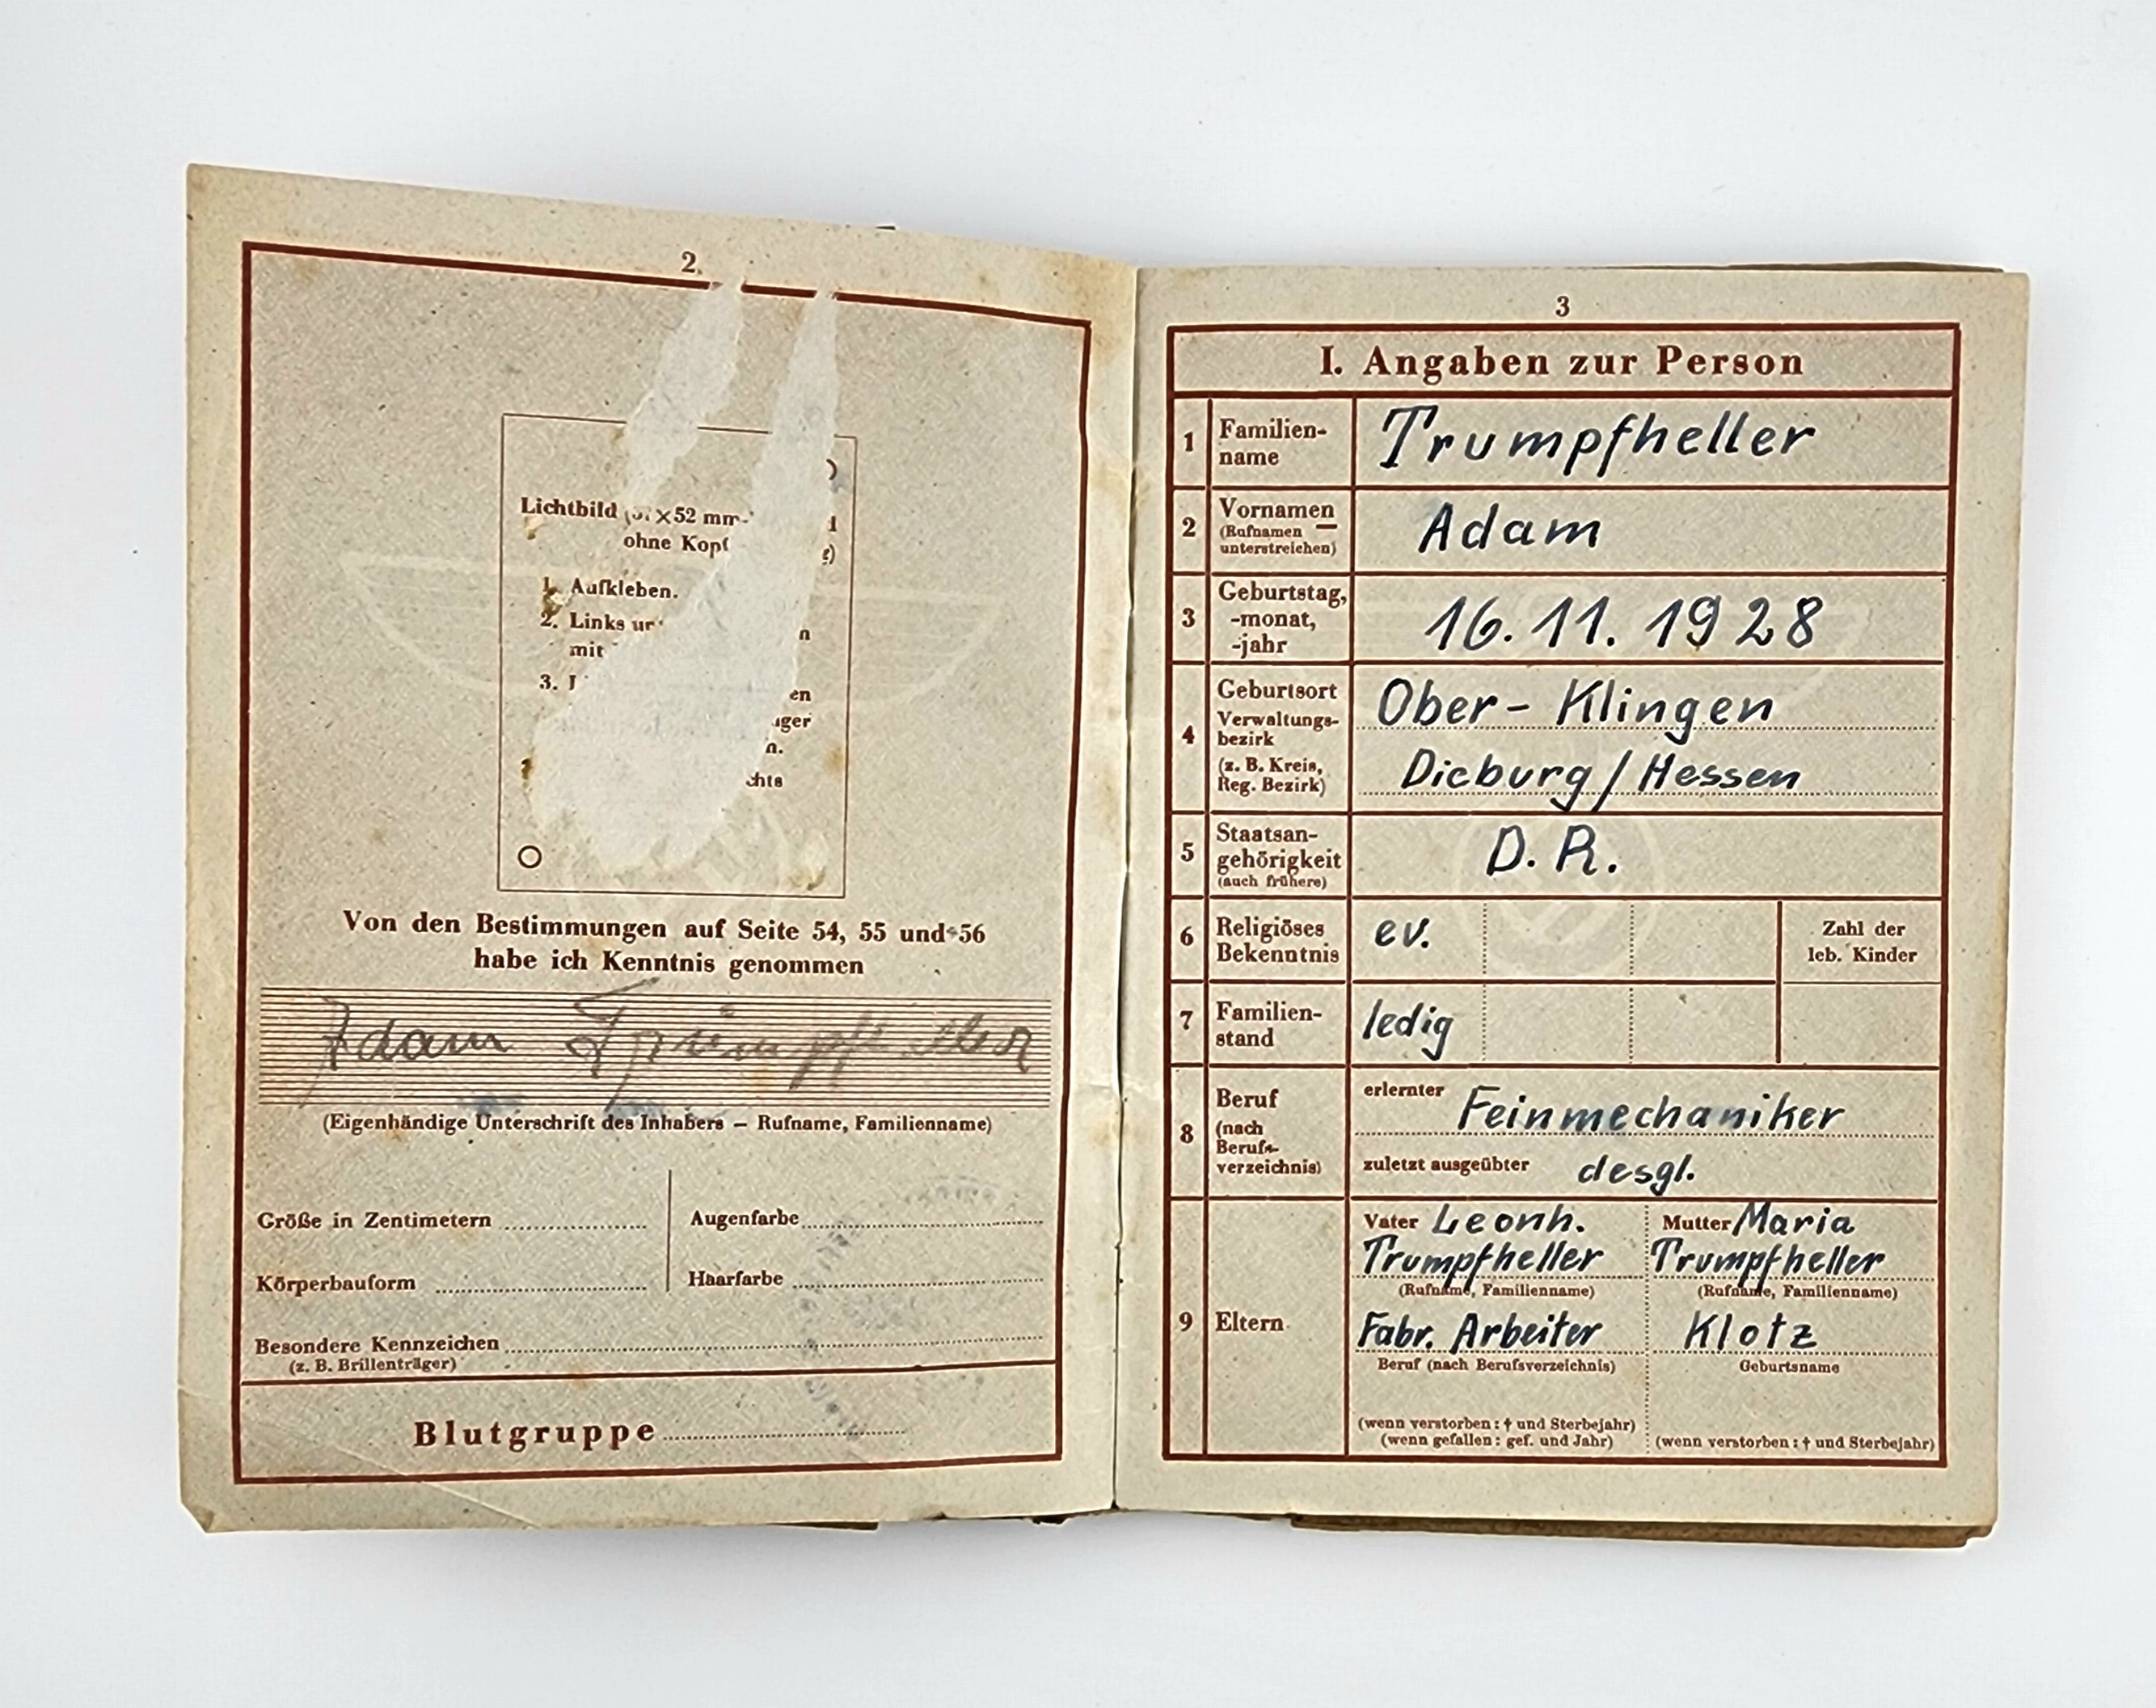 2
Lichtbild ×52 mm
ohne
1. Aufkleben.
2. Links
mit
3.
Von den Bestimmungen auf Seite 54, 55 und 56
habe ich Kenntnis genommen
Adam Trumpfheller
(Eigenhändige Unterschrift des Inhabers – Rufname, Familienname)
Größe in Zentimetern
Augenfarbe
Körperbauform
Haarfarbe
Besondere Kennzeichen
(z. B. Brillenträger)
Blutgruppe
3
I. Angaben zur Person
1 Familien-
name
Trumpfheller
2 Vornamen
(Rufnamen
unterstreichen)
Adam
3 Geburtstag,
-monat,
-jahr
16.11.1928
4 Geburtsort
Verwaltungs-
bezirk
(z. B. Kreis,
Reg. Bezirk)
Ober-Klingen
Dieburg/Hessen
5 Staatsan-
gehörigkeit
(auch frühere)
D.R.
6 Religiöses
Bekenntnis
ev.
Zahl der
leb. Kinder
7 Familien-
stand
ledig
8 Beruf
(nach
Berufs-
verzeichnis)
erlernter Feinmechaniker
zuletzt ausgeübter desgl.
9 Eltern
Vater Leonh.
Trumpfheller
(Rufname, Familienname)
Fabr. Arbeiter
Beruf (nach Berufsverzeichnis)
(wenn verstorben: † und Sterbejahr)
(wenn gefallen: gef. und Jahr)
Mutter Maria
Trumpfheller
(Rufname, Familienname)
Klotz
Geburtsname
(wenn verstorben: † und Sterbejahr)